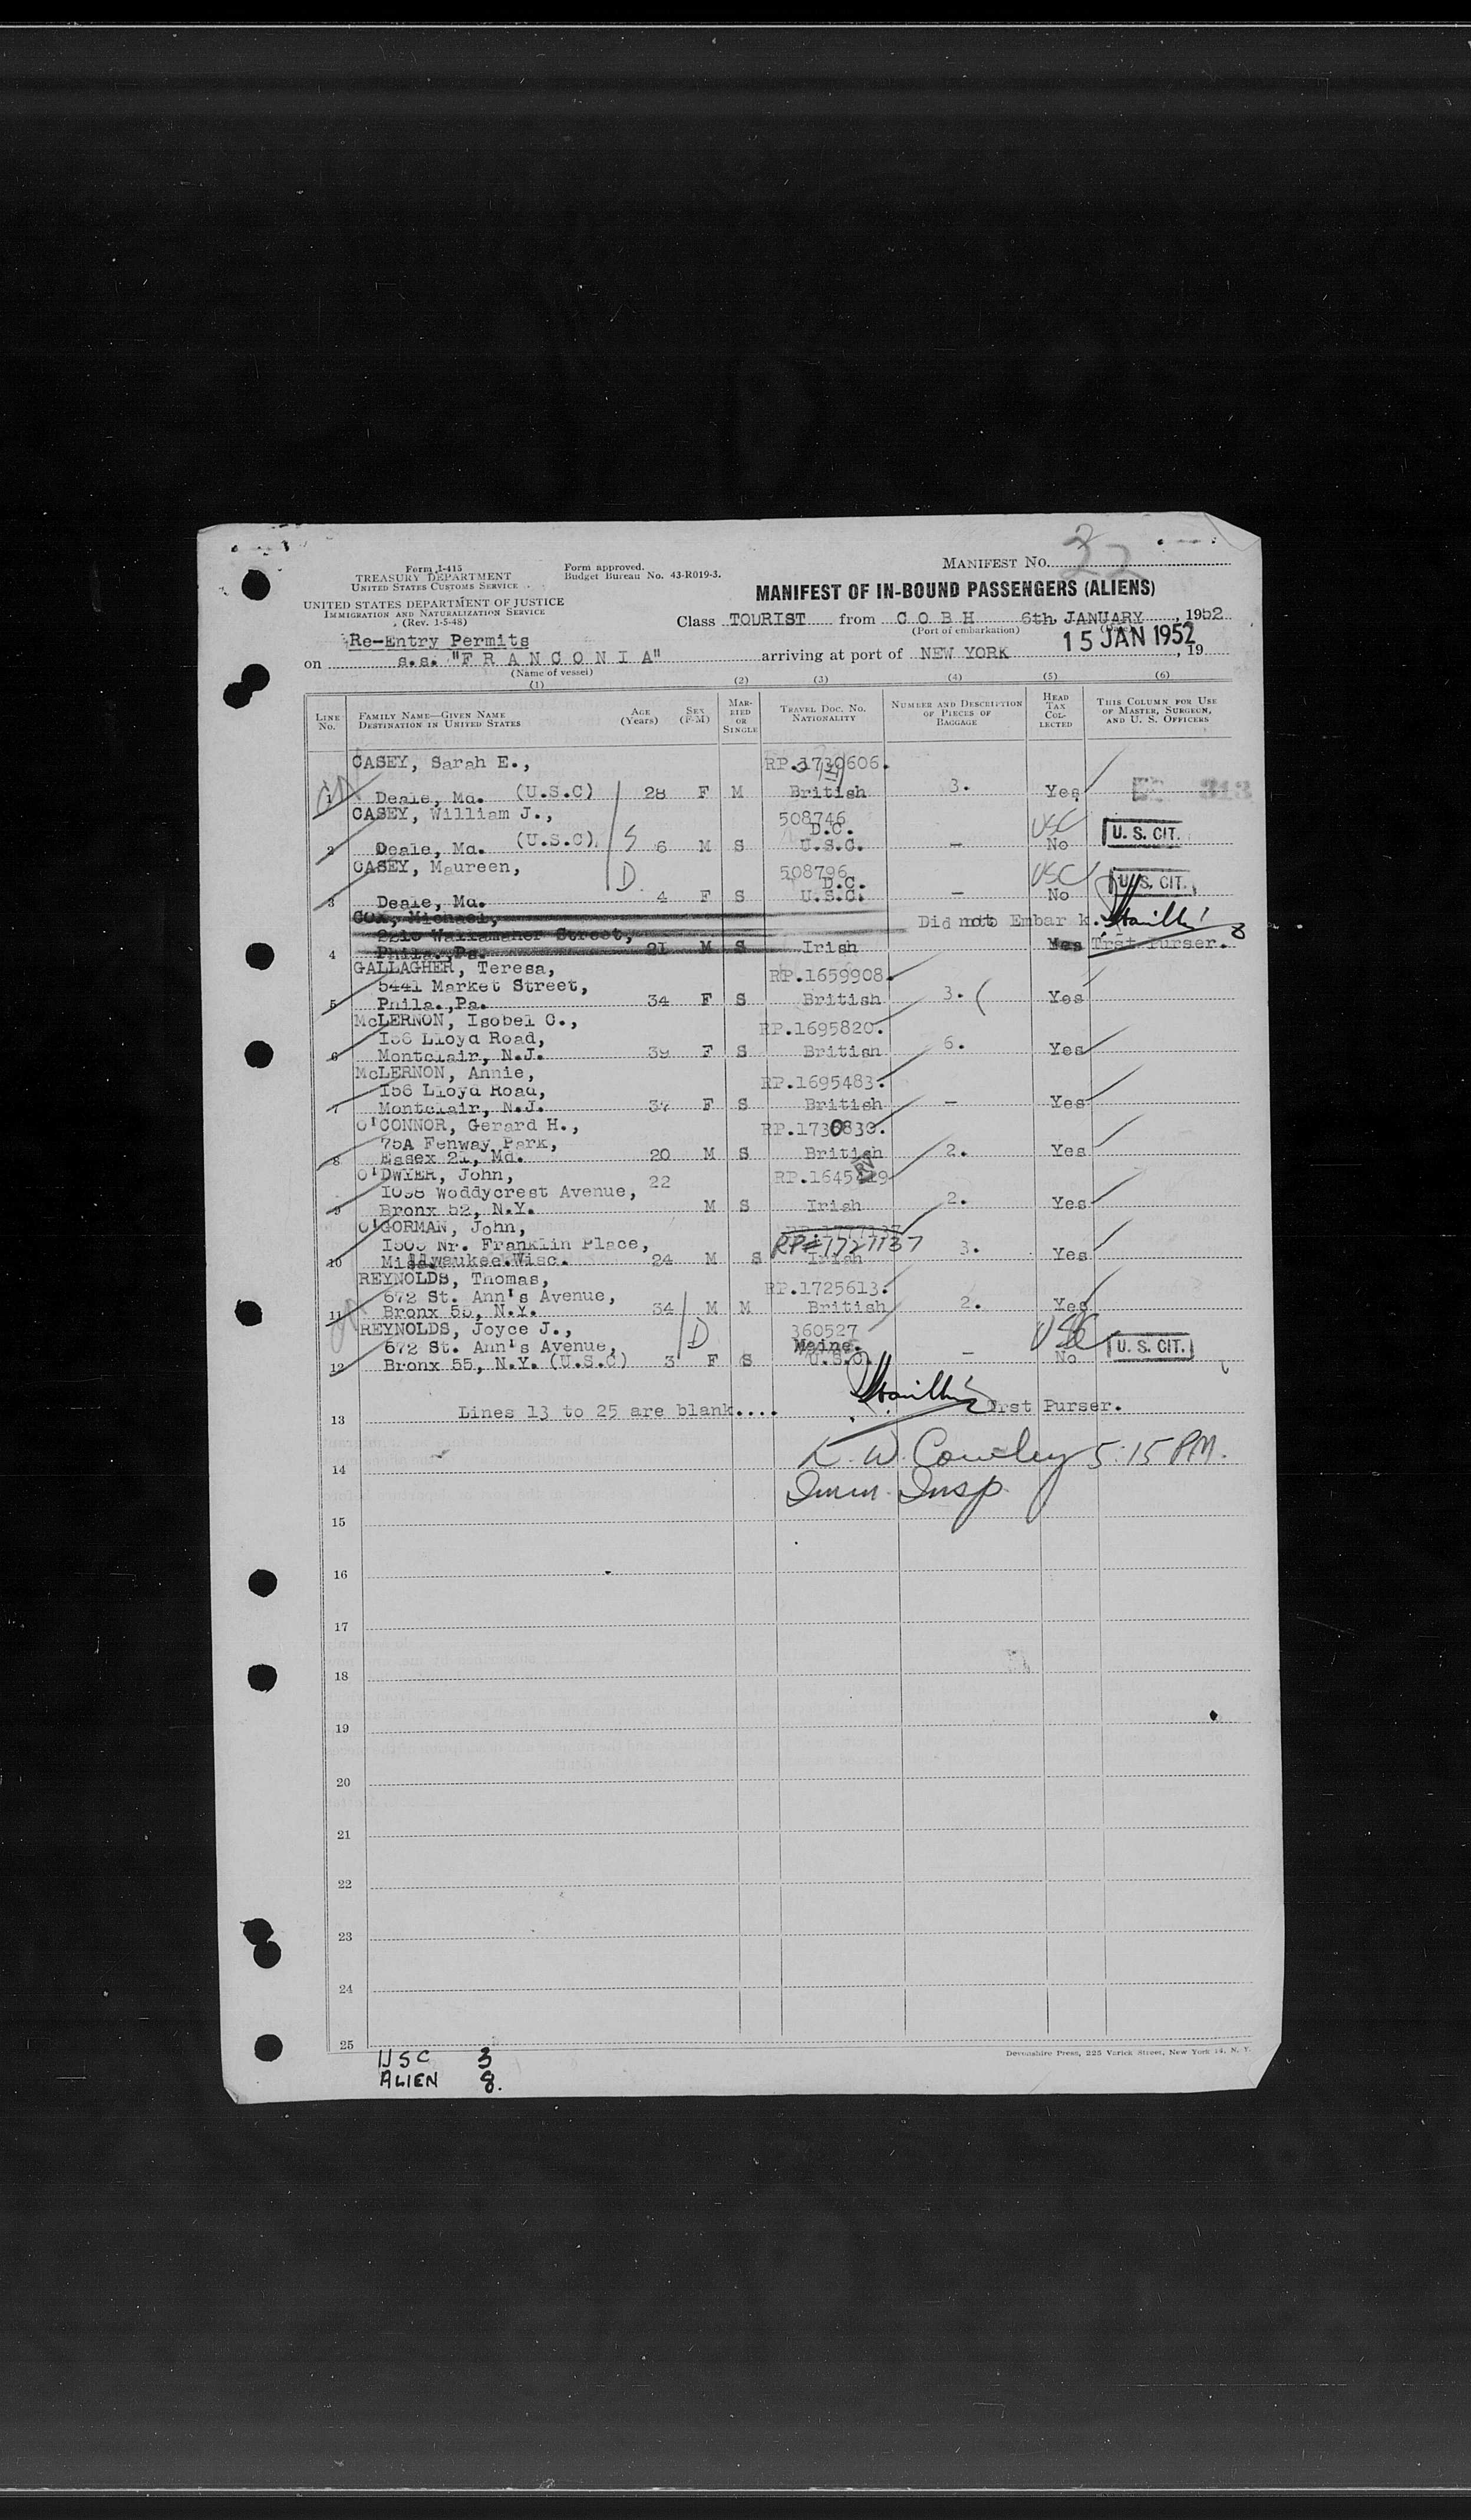 MANIFEST NO. 32
Form I-415
TREASURY DEPARTMENT
UNITED STATES CUSTOMS SERVICE
Form approved.
Budget Bureau No. 43-R019-3.
MANIFEST OF IN-BOUND PASSENGERS (ALIENS)
UNITED STATES DEPARTMENT OF JUSTICE
IMMIGRATION AND NATURALIZATION SERVICE
(Rev. 1-5-48)
Class TOURIST from C O B H 6th JANUARY, 1952
(Port of embarkation)
Re-Entry Permits
15 JAN 1952
on s.s. "F R A N C O N I A" arriving at port of NEW YORK, 19
(Name of vessel)
(1) (2) (3) (4) (5) (6)
LINE No. FAMILY NAME—GIVEN NAME DESTINATION IN UNITED STATES AGE (Years) SEX (F-M) MARRIED OR SINGLE TRAVEL DOC. NO. NATIONALITY NUMBER AND DESCRIPTION OF PIECES OF BAGGAGE HEAD TAX COLLECTED THIS COLUMN FOR USE OF MASTER, SURGEON, AND U. S. OFFICERS
CASEY, Sarah E., RP.1730606.
1 Deale, Md. (U.S.C) 28 F M British 3. Yes 313
CASEY, William J., 508746
D.C. USC
2 Deale, Md. (U.S.C) S 6 M S U.S.C. — No U. S. CIT.
CASEY, Maureen, 508796
D D.C. USC
3 Deale, Md. 4 F S U.S.C. — No U. S. CIT.
COX, Michael, Did not Embark.
Street,
4 Phila., Pa. 21 M S Irish Yes Purser.
GALLAGHER, Teresa, RP.1659908.
5441 Market Street,
5 Phila., Pa. 34 F S British 3. Yes
McLERNON, Isobel C., RP.1695820.
156 Lloyd Road,
6 Montclair, N.J. 39 F S British 6. Yes
McLERNON, Annie, RP.1695483.
156 Lloyd Road,
7 Montclair, N.J. 37 F S British — Yes
O'CONNOR, Gerard H., RP.1730830.
75A Fenway Park,
8 Essex 21, Md. 20 M S British 2. Yes
O'DWYER, John, 22
1058 Woddycrest Avenue,
9 Bronx 52, N.Y. M S Irish 2. Yes
O'GORMAN, John,
1505 Nr. Franklin Place, RP#1727737
10 Milwaukee.Wisc. 24 M S Irish 3. Yes
REYNOLDS, Thomas, RP.1725613.
672 St. Ann's Avenue,
11 Bronx 55, N.Y. 34 M M British 2. Yes
REYNOLDS, Joyce J., 360527 USC
672 St. Ann's Avenue, D Maine.
12 Bronx 55, N.Y. (U.S.C) 3 F S U.S.C. — No U. S. CIT.
13 Lines 13 to 25 are blank.... Purser.
14 K. W. Cowley 5:15 PM.
Imm. Insp.
15
16
17
18
19
20
21
22
23
24
25
Devonshire Press, 225 Varick Street, New York 14, N. Y.
USC 3
ALIEN 8.